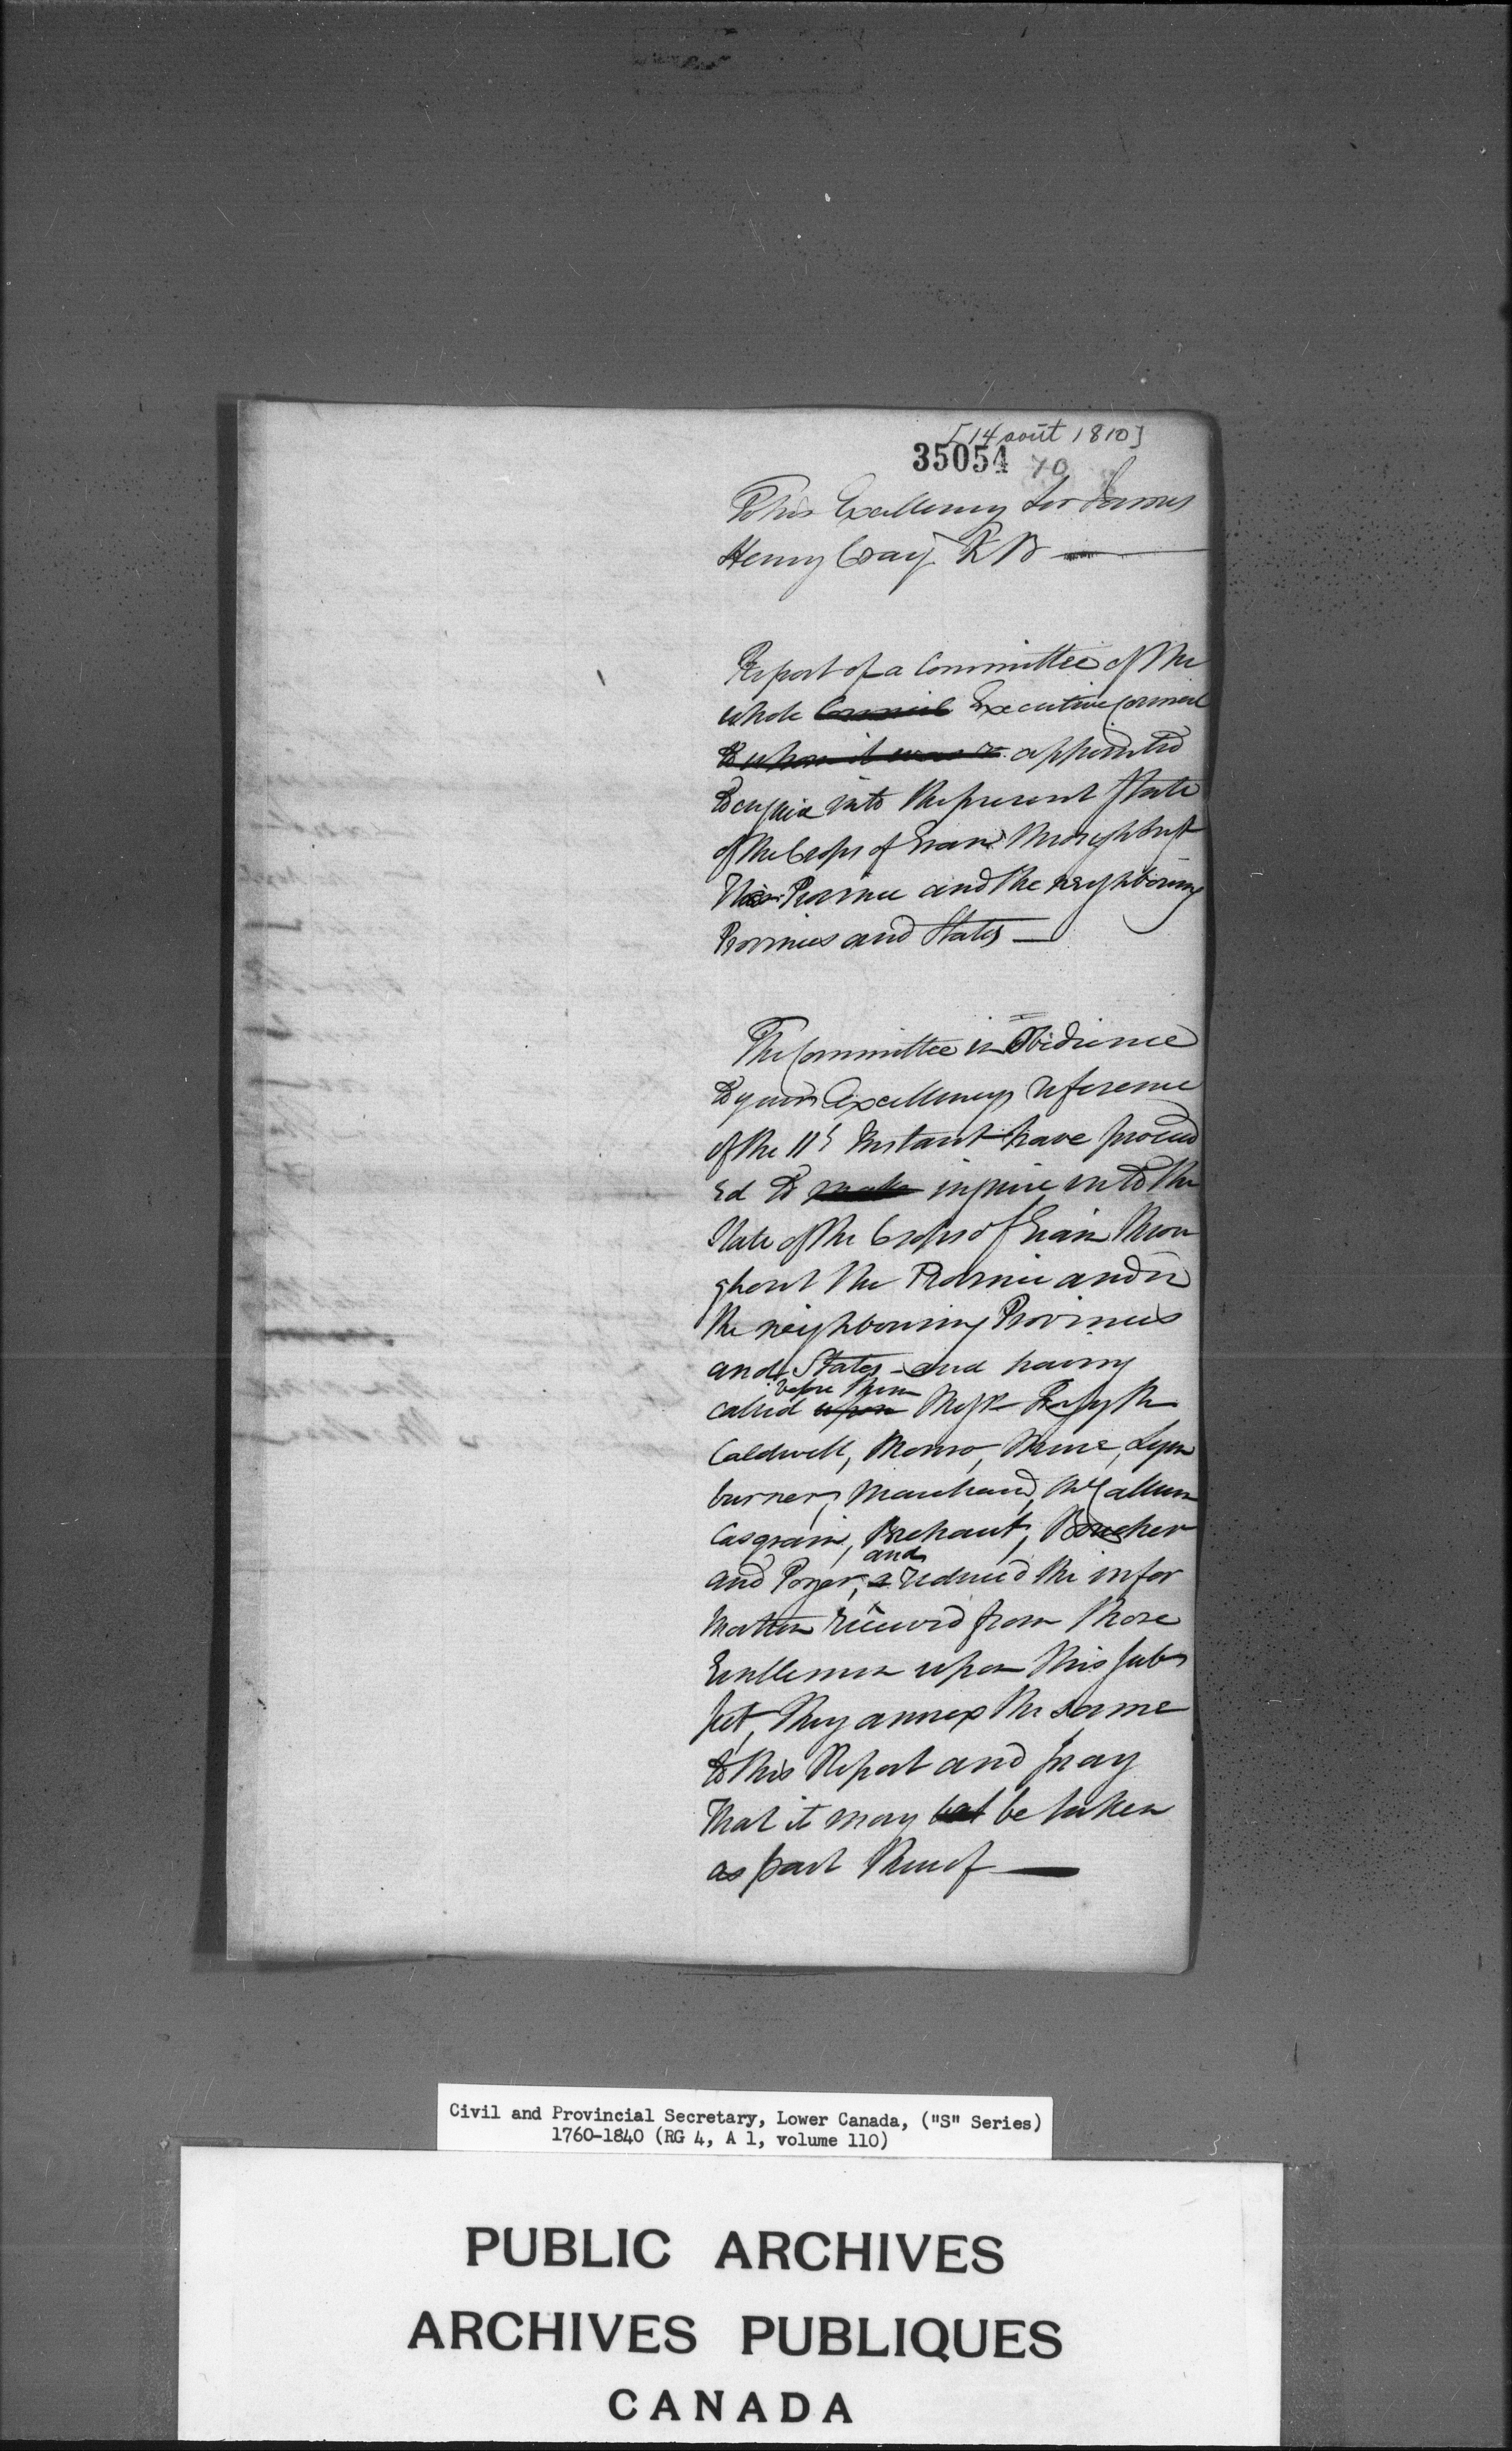 [14 août 1810]
35054 70
To His Excellency Sir James
Henry Craig K B —
Report of a Committee of the
whole Council Executive Council
to whom it was re appointed
to enquire into the present State
of the Crops of Grain throughout
this Province and the neighbouring
Provinces and States —
The Committee in Obedience
to your Excellencys reference
of the 11th Instant have proceed
ed to make inquire into the
State of the Crops of Grain throu
ghout the Province and in
the neighbouring Provinces
and States - and having
before them
called upon Messrs Forsyth
Caldwell, Monro, Mure, Lym
burner, Marchand, McCallum
Casgrain, Brehaut, Boucher
and
and Pozer, a reduced the infor
mation received from those
Gentlemen upon this Sub
ject, they annex the same
to this Report and pray
that it may bet be taken
as part thereof —
Civil and Provincial Secretary, Lower Canada, ("S" Series)
1760-1840 (RG 4, A 1, volume 110)
PUBLIC ARCHIVES
ARCHIVES PUBLIQUES
CANADA